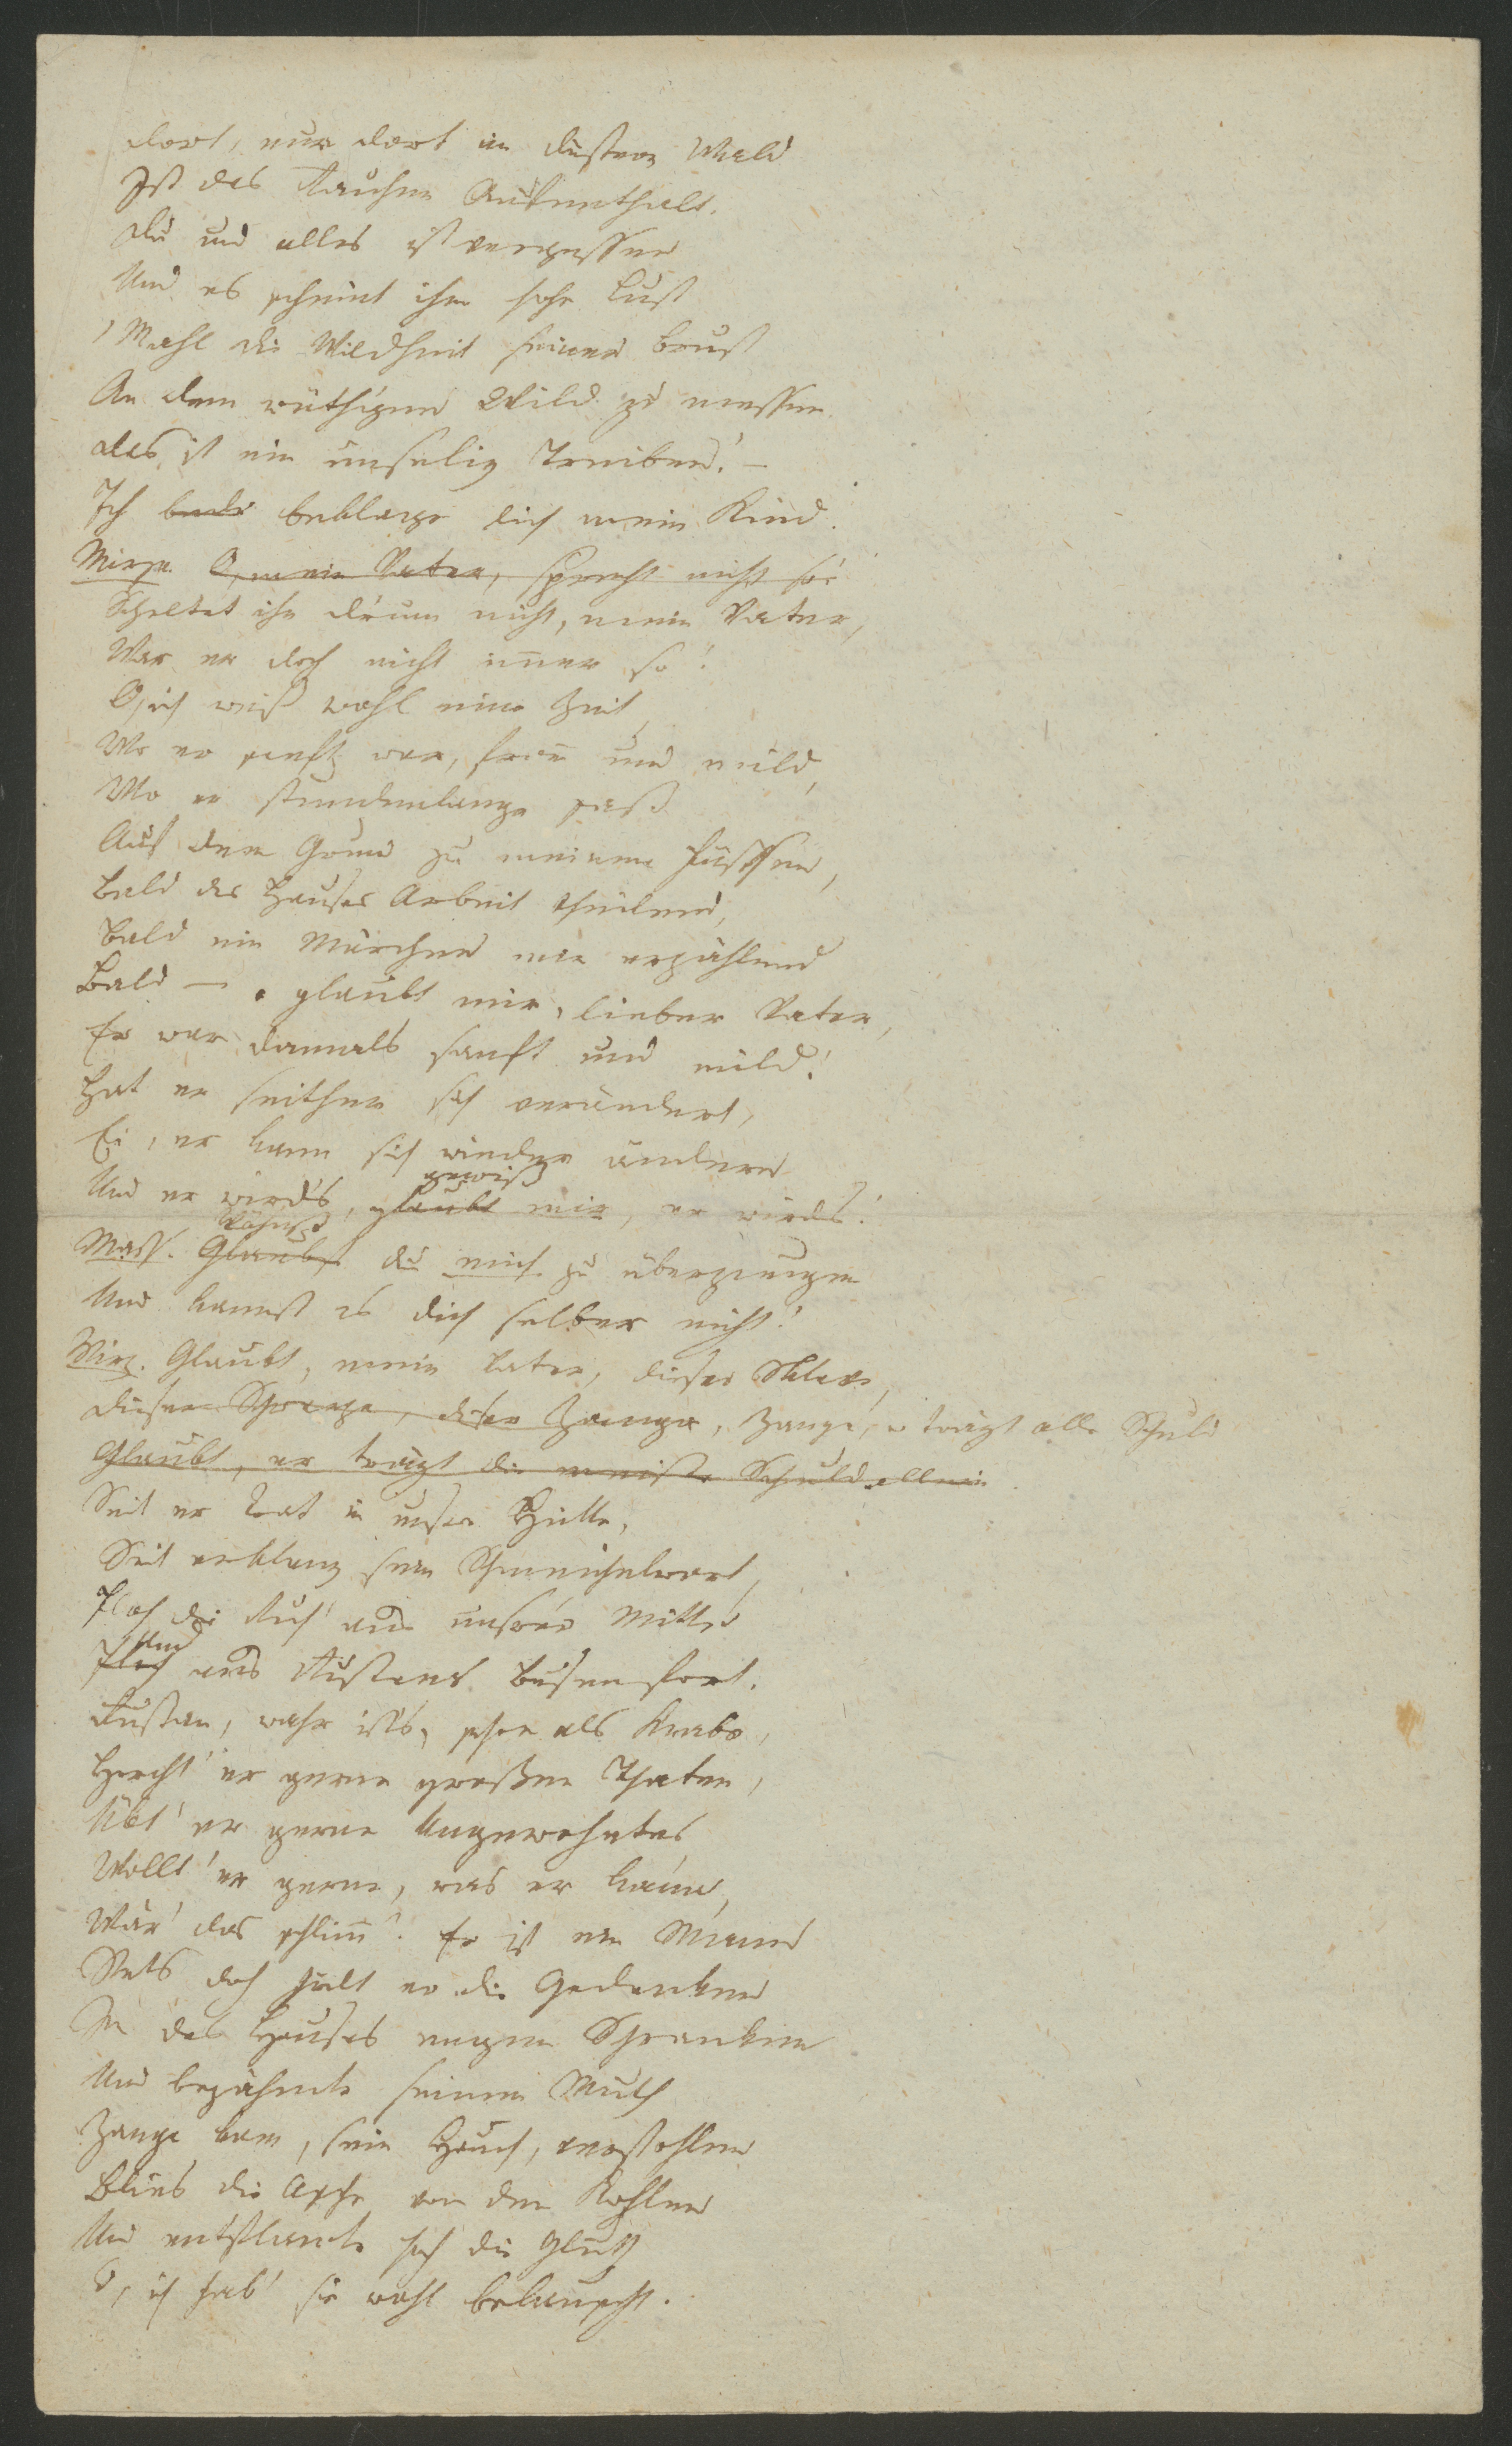 Dort, nur dort im düstern Wald
Ist des Rauhen Aufenthalt.
Du und alles ist vergessen
Und es scheint ihm hohe Lust
Mahl die Wildheit seiner Brust
An dem wüthigen Wild zu messen
Das ist ein unselig Treiben! –
Ich beklage dich mein Kind.
Mirza. O, mein Vater, sprecht nicht so!
Scheltet ihn drum nicht, mein Vater,
War er doch nicht im̅er so!
O, ich weiß wohl eine Zeit,
Wo er sanft war, from̅ und mild,
Wo er stundenlange saß
Auf dem Grund zu meinen Füssen,
Bald des Hauses Arbeit theilend,
Bald ein Märchen mir erzählend
Bald – glaubt mir, lieber Vater,
Er war damals sanft und mild!
Hat er seither sich verändert,
Ei, er kann sich wieder ändern
gewiß
Und er wird's, glaubt mir, er wirds!
Wähnst
Mass. Glaubst du mich zu überzeugen
Und kannst es dich selber nicht!
Mirz. Glaubt, mein Vater, dieser Sklave,
Dieser Schwarze, dieser Zanga, Zanga, er trägt alle Schuld
Glaubt, er trägt die meiste Schuld allein
Seit er trat in unsre Hütte,
Seit erklang sein Schmeichelwort,
Floh die Ruh' aus unsrer Mitte
Und
Floh aus Rustans Busen fort.
Rustan, wahr ist's, schon als Knabe,
Horcht' er gerne großen Thaten,
Übt' er gerne Ungewohntes
Wollt' er gerne, was er kaum,
Wär' das schlim̅? Er ist ein Mann
Stets doch hielt er die Gedanken
In des Hauses engen Schranken
Und bezähmte seinen Muth
Zanga kam, sein Hauch, verstohlen
Blies die Asche von den Kohlen
Und entflammte hoch die Gluth
O, ich hab' sie wohl belauscht.